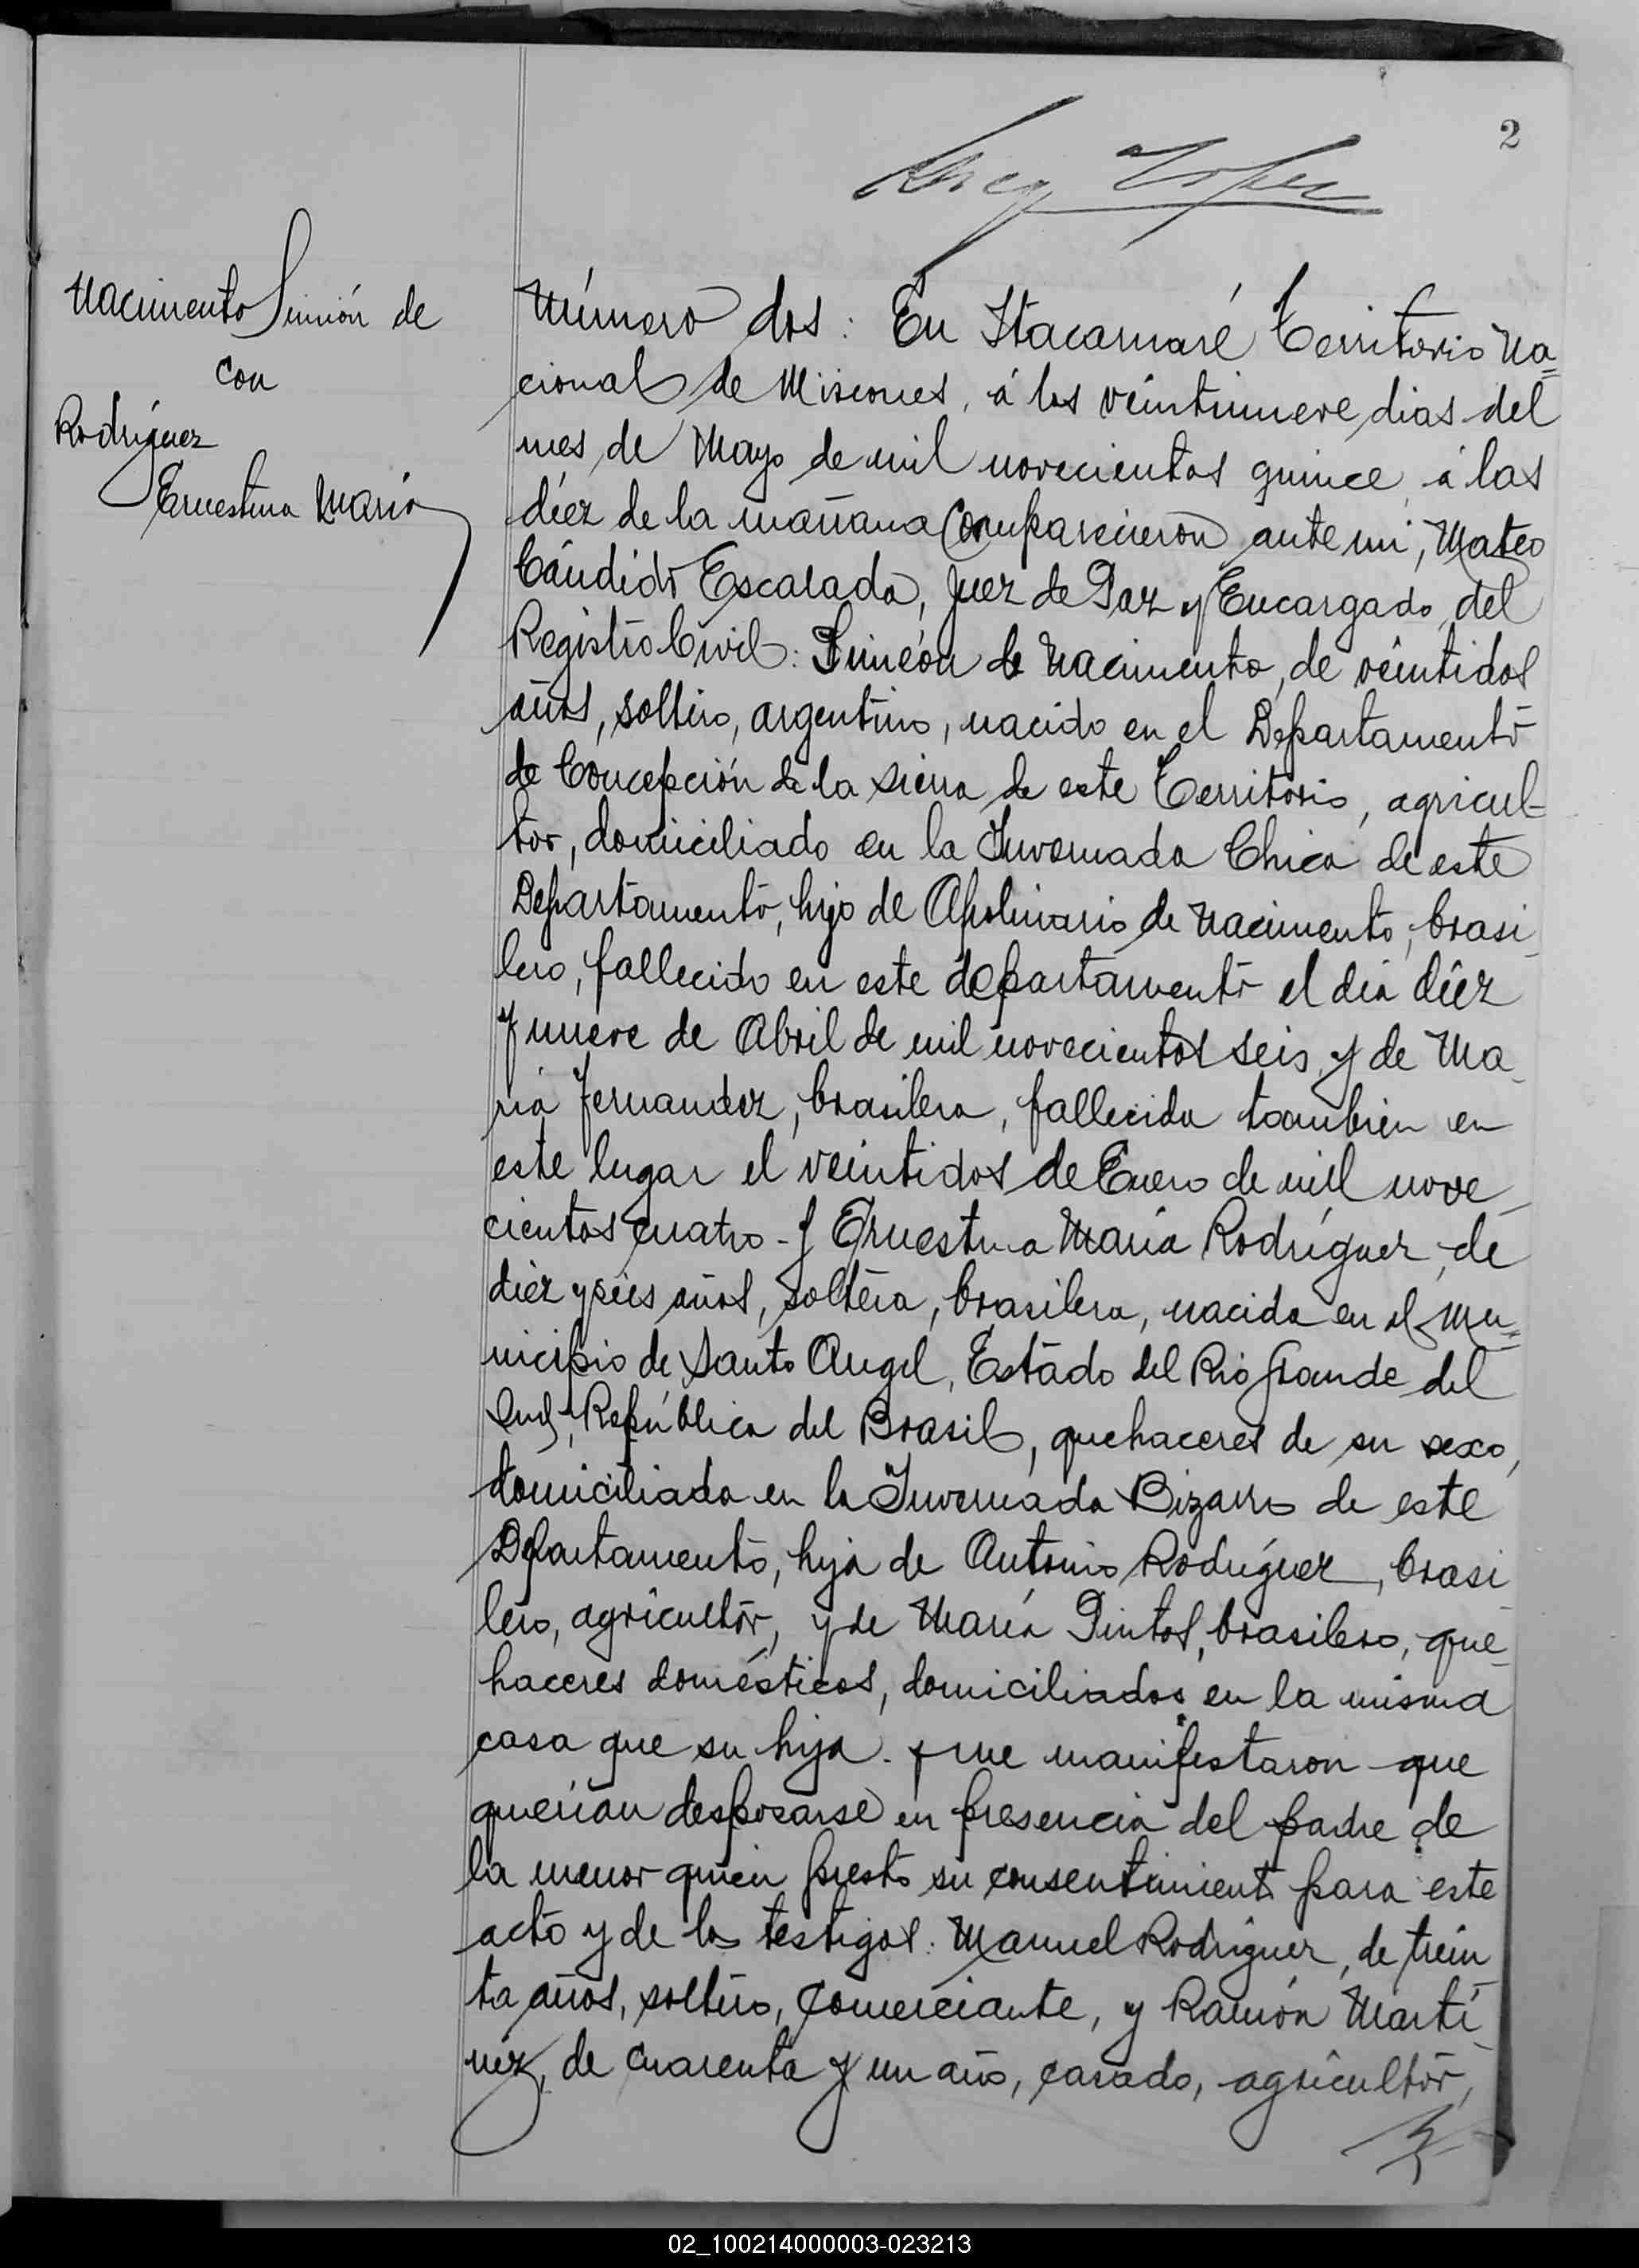 2
Nacimento Simión de
con
Rodríguez
Ernestina María
Número dos: En Itacaruaré Territorio Na=
cional de Misiones, á los veintinueve dias del
mes de Mayo de mil novecientos quince, á las
diez de la mañana Comparecieron ante mi, Mateo
Cándido Escalada, Juez de Paz y Encargado del
Registro Civil: Simeón de Nacimento, de veintidos
años, soltero, argentino, nacido en el Departamento
de Concepción de la Sierra de este Territorio, agricul-
tor, domiciliado en la Invernada Chica de este
Departamento, hijo de Apolinario de Nacimento, brasi_
lero, fallecido en este departamento el día diez
y nueve de Abril de mil novecientos seis, y de Ma_
ria Fernandez, brasilera, fallecida tambien en
este lugar el veintidos de Enero de mil nove_
cientos cuatro - y Ernestina María Rodríguez, de
diez y seis años, soltera, brasilera, nacida en el Mu=
nicipio de Santo Angel, Estado del Rio Grande del
Sud, República del Brasil, quehaceres de su sexo,
domiciliada en la Invernada Bizarro de este
Departamento, hija de Antonio Rodríguez, brasi_
lero, agricultor, y de María Pintos, brasilera, que_
haceres domésticos, domiciliados en la misma
casa que su hija. y me manifestaron que
querían desposarse en presencia del padre de
la menor quien presto su consentimiento para este
acto y de los testigos: Manuel Rodriguez, de trein_
ta años, soltero, comerciante, y Ramón Martí_
nez, de cuarenta y un año, casado, agricultor,
02_100214000003-023213